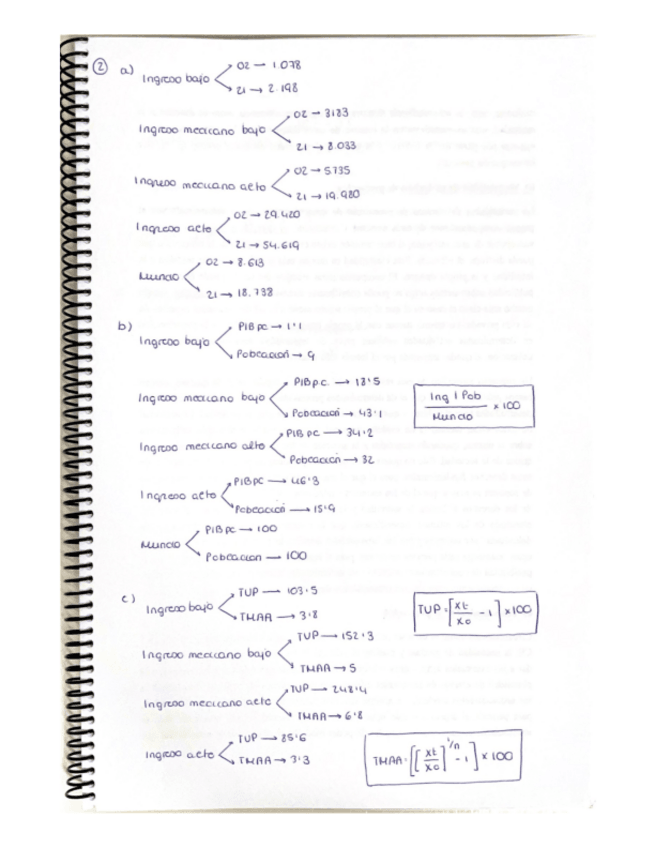 ② a) Ingreso bajo
02 → 1.078
21 → 2.198
Ingreso mediano bajo
02 → 3183
21 → 8.033
Ingreso mediano alto
02 → 5.735
21 → 19.980
Ingreso alto
02 → 29.420
21 → 54.619
Mundo
02 → 8.613
21 → 18.738
b) Ingreso bajo
PIBpc → 1'1
Población → 9
Ingreso mediano bajo
PIBpc. → 18'5
Población → 43'1
Ing | Pob
Mundo
× 100
Ingreso mediano alto
PIBpc → 34'2
Población → 32
Ingreso alto
PIBPC → 46'3
Población → 15'9
Mundo
PIBPC → 100
Población → 100
c) Ingreso bajo
TUP → 103'5
TMAA → 3'8
TUP = [Xt/Xo - 1] × 100
Ingreso mediano bajo
TUP → 152'3
TMAA → 5
Ingreso mediano alto
TUP → 248'4
TMAA → 6'8
Ingreso alto
TUP → 85'6
TMAA → 3'3
TMAA = [[Xt/Xo]^1/n - 1] × 100